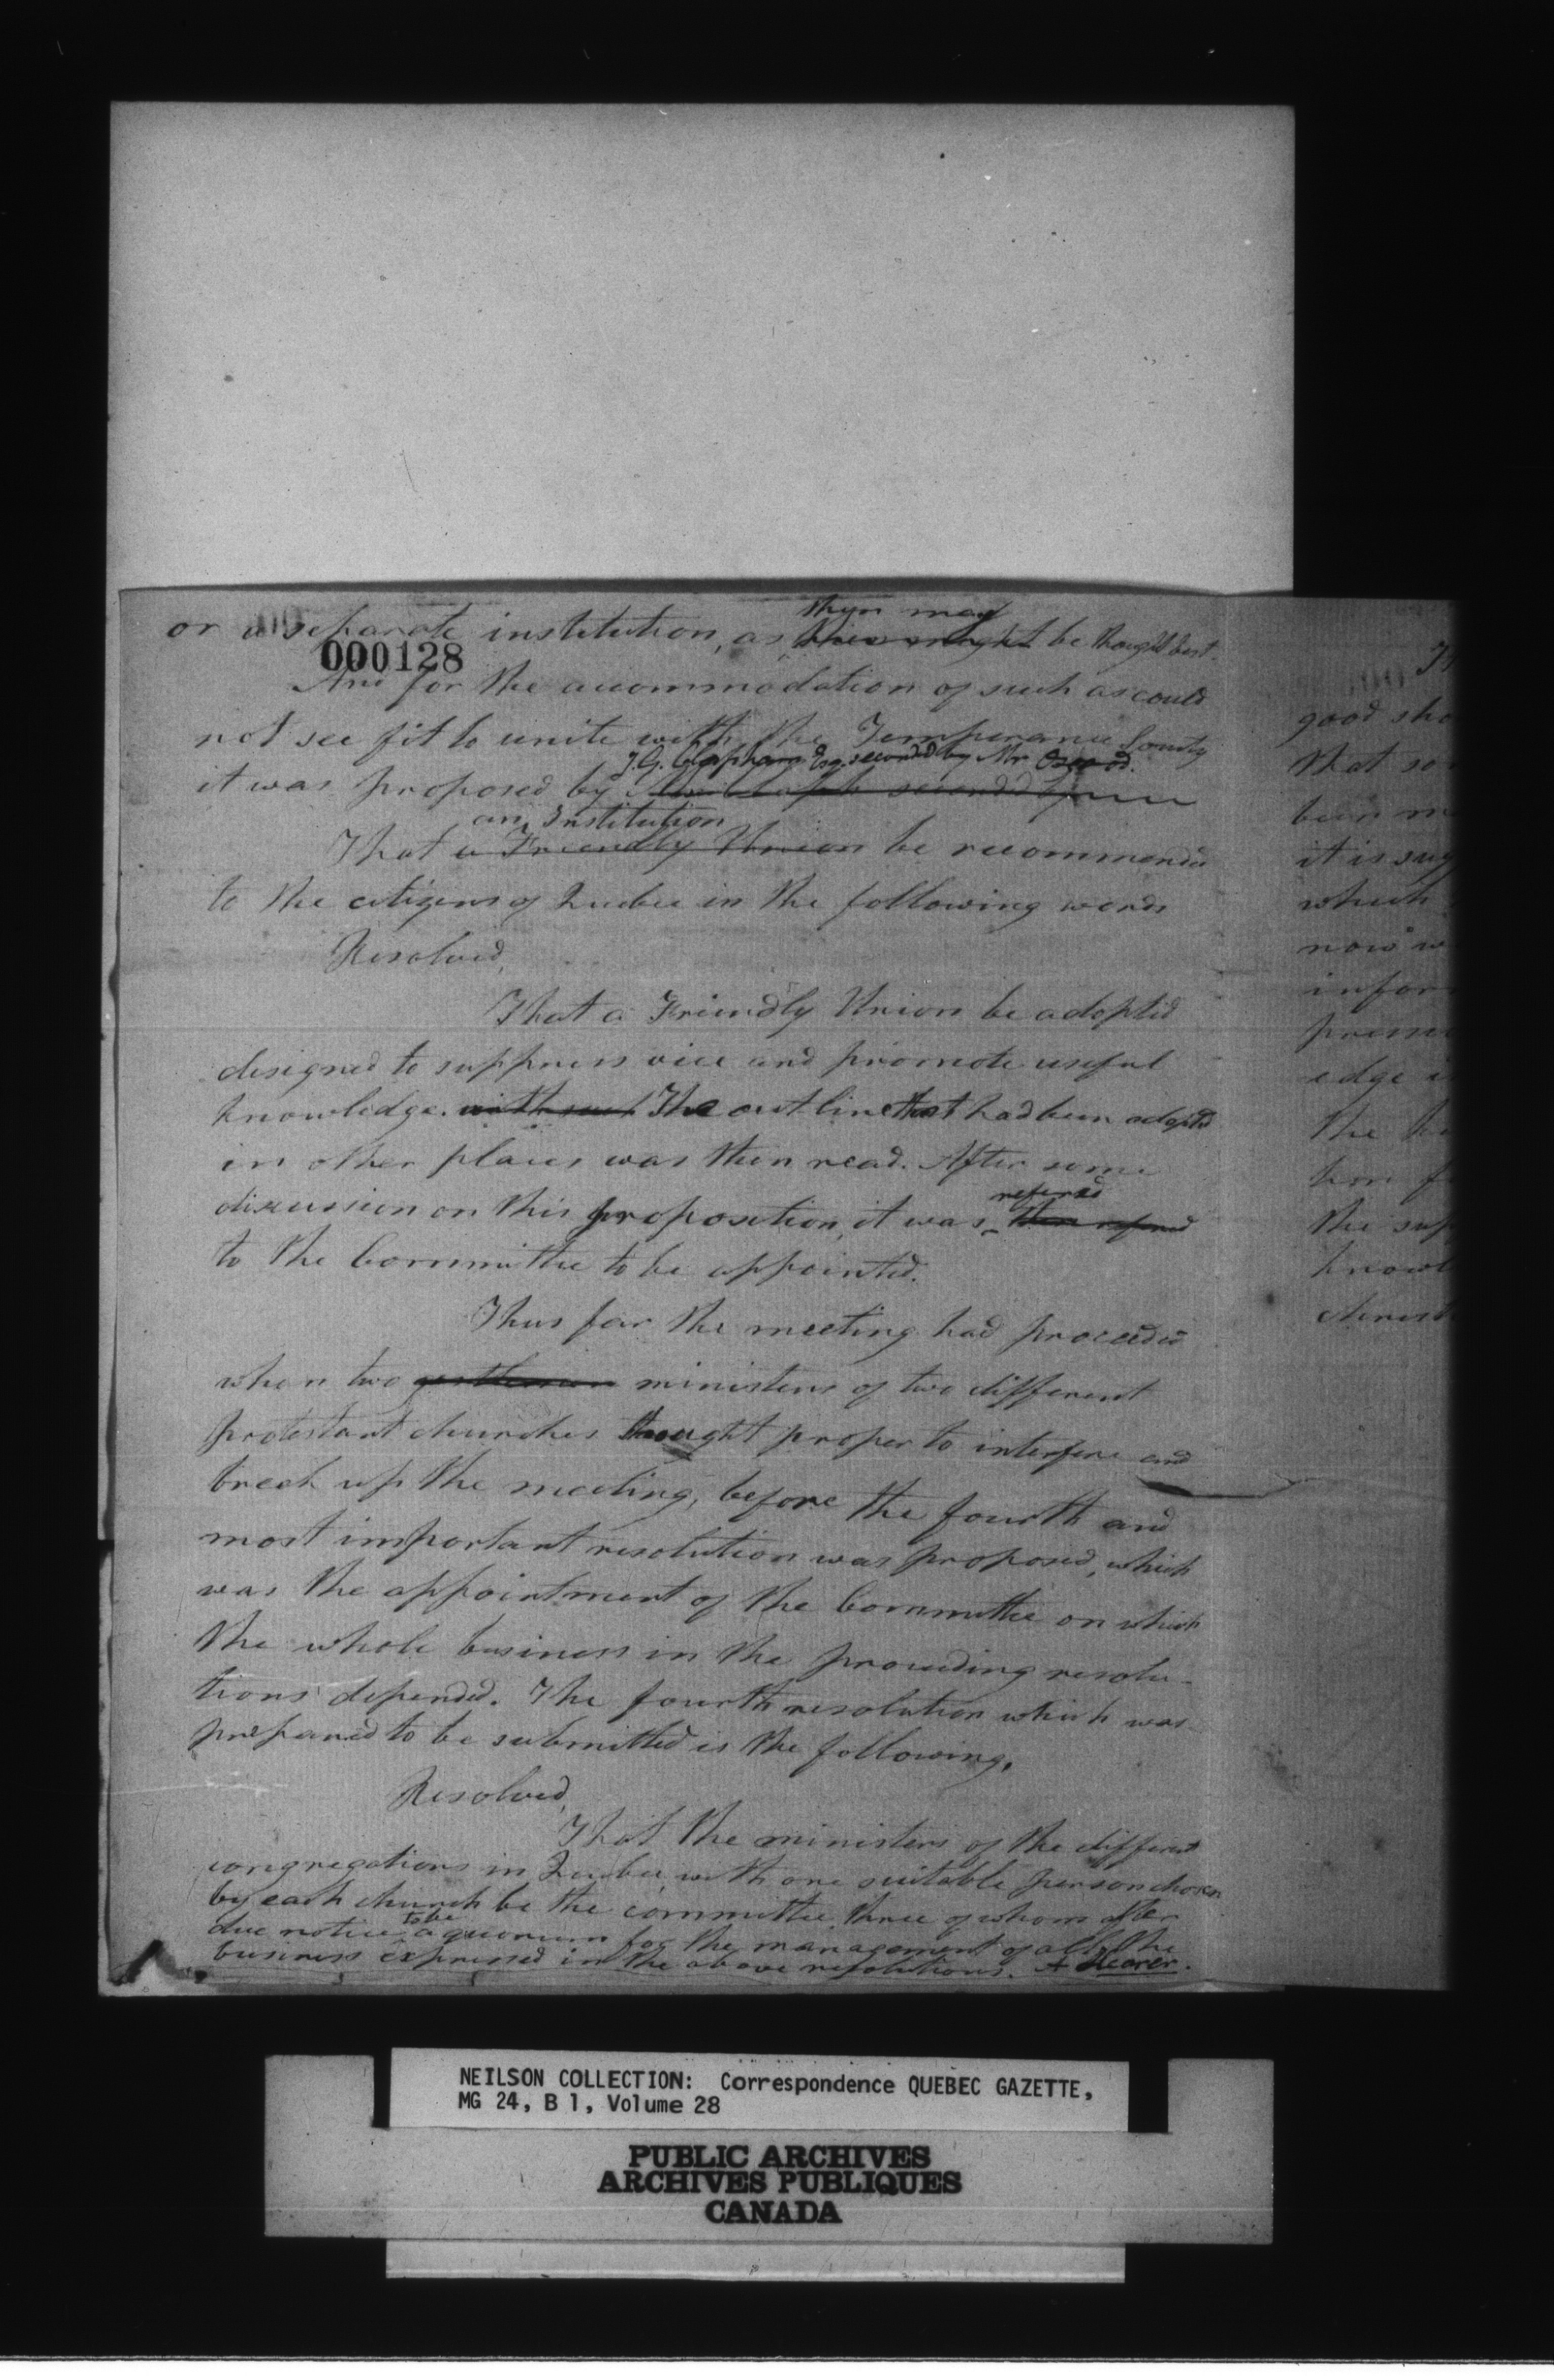 or a separate institution, as may be thought best.
000128
And for the accommodation of such as could
not see fit to unite with the Temperance Society
J. G. Clapham Esq. seconded by Mr Osgood.
it was proposed by
an Institution
That a Friendly Union be recommended
to the citizens of Quebec in the following words
Resolved,
That a Friendly Union be adopted
designed to suppress vice and promote useful
knowledge. The outline that had been adopted
in other places was then read. After some
referred
discussion on this proposition, it was then refered
to the Committee to be appointed.
Thus far the meeting had proceeded
when two gentlemen ministers of two different
protestant churches thought proper to interfere and
break up the meeting, before the fourth and
most important resolution was proposed, which
was the appointment of the Committee on which
the whole business in the preceeding resolu-
tions depended. The fourth resolution which was
prepared to be submitted is the following,
Resolved,
That the ministers of the different
congregations in Quebec with one suitable person chosen
by each church be the committee, three of whom after
to be
due notice a quorum for the management of all the
business expressed in the above resolutions. A Hearer.
good sho
that so
been m
it is sug
which
now w
infor
edge i
the
the sup
knowl
christ
NEILSON COLLECTION: Correspondence QUEBEC GAZETTE,
MG 24, B 1, Volume 28
PUBLIC ARCHIVES
ARCHIVES PUBLIQUES
CANADA